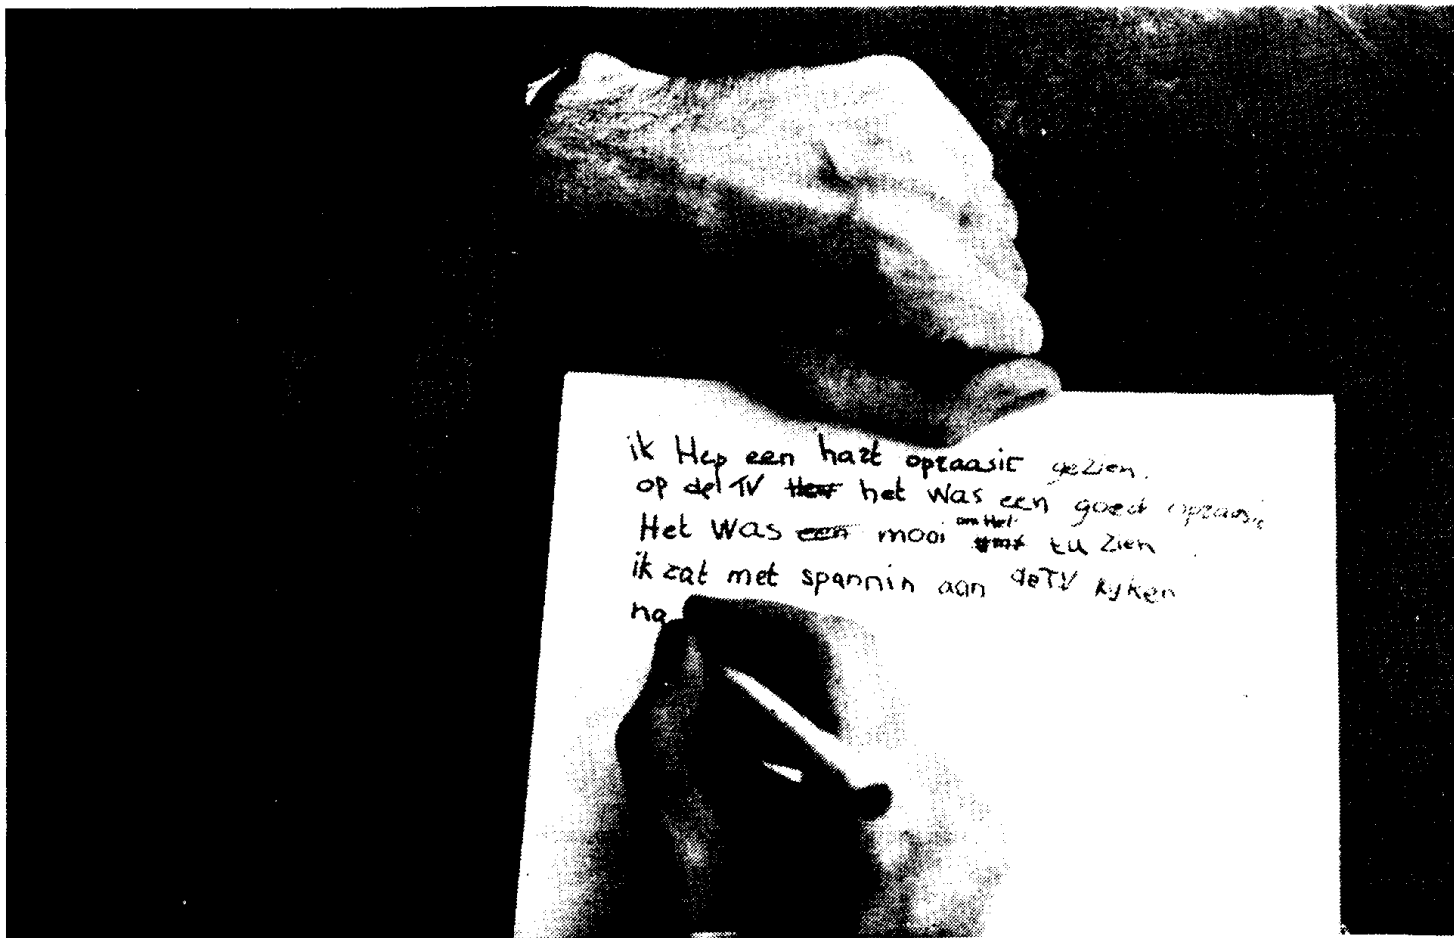 ik Hep een hart opraasie gezien.
op de TV het was een goed opraasie
Het Was mooi om Het tu zien
ik zat met spannin aan de TV kijken
na